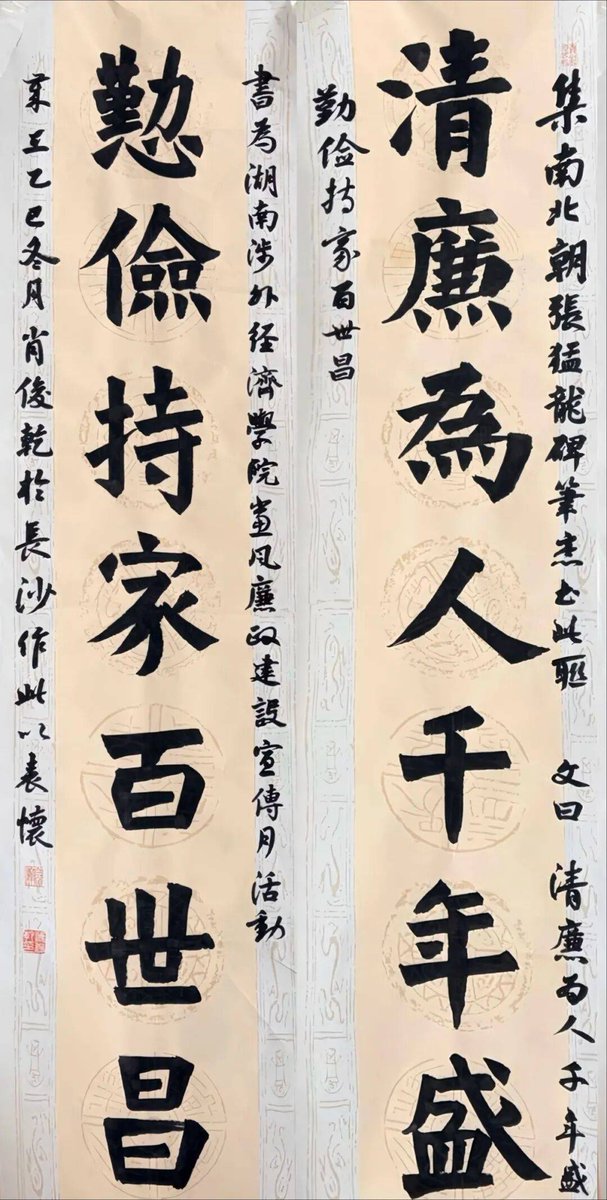 集南北朝張猛龍碑筆意书此联 文曰 清廉为人千年盛
清廉為人千年盛
勤俭持家百世昌
書為湖南涉外经濟學院党风廉政建設宣傳月活動
懃儉持家百世昌
乙巳冬月肖俊乾於長沙作此以表懷